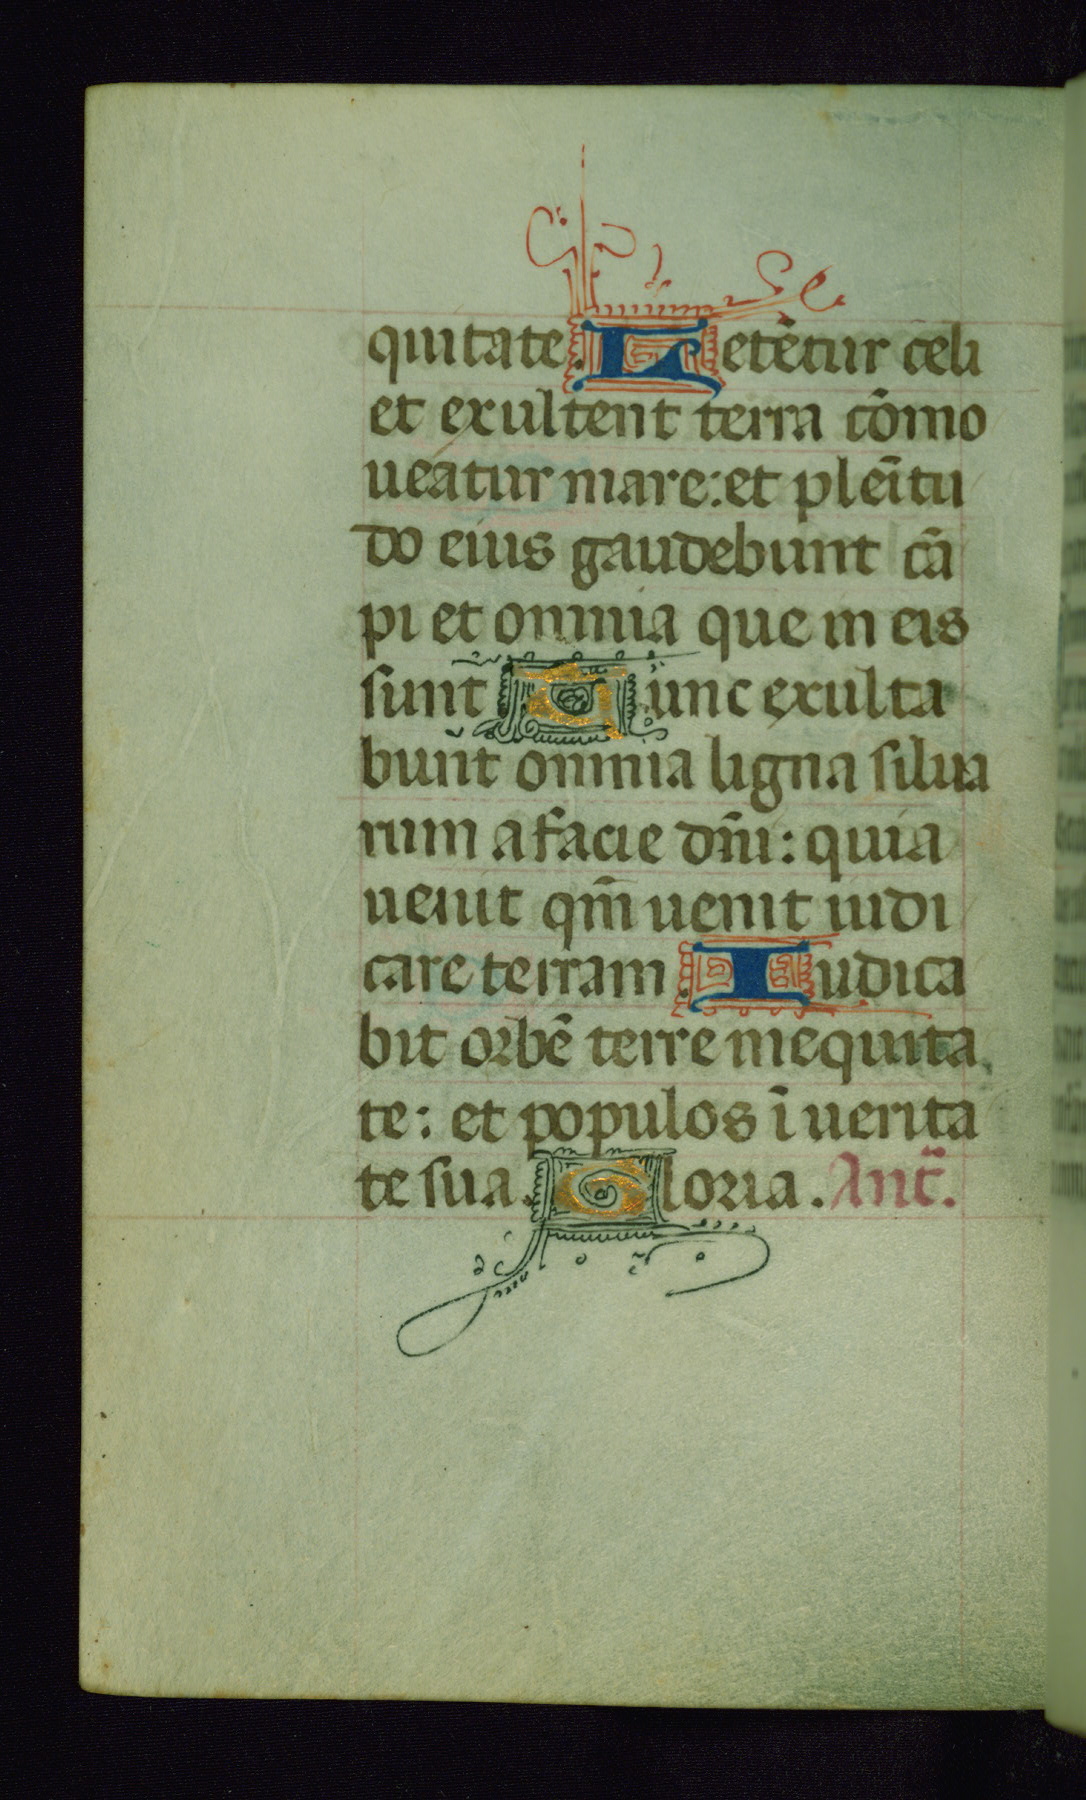 quitate. Letētur celi
et exultent terra cōmo
ueatur mare: et pleītu
do eius gaudebunt cā
pi et omnia que in eis
sunt Tunc exulta
bunt omnia ligna silua
rum a facie dn̄i: quia
uenit qm̄ uenit iudi
care terram. Iudica
bit orbē terre in equita
te: et populos ī uerita
te sua. Gloria. Ant̄.